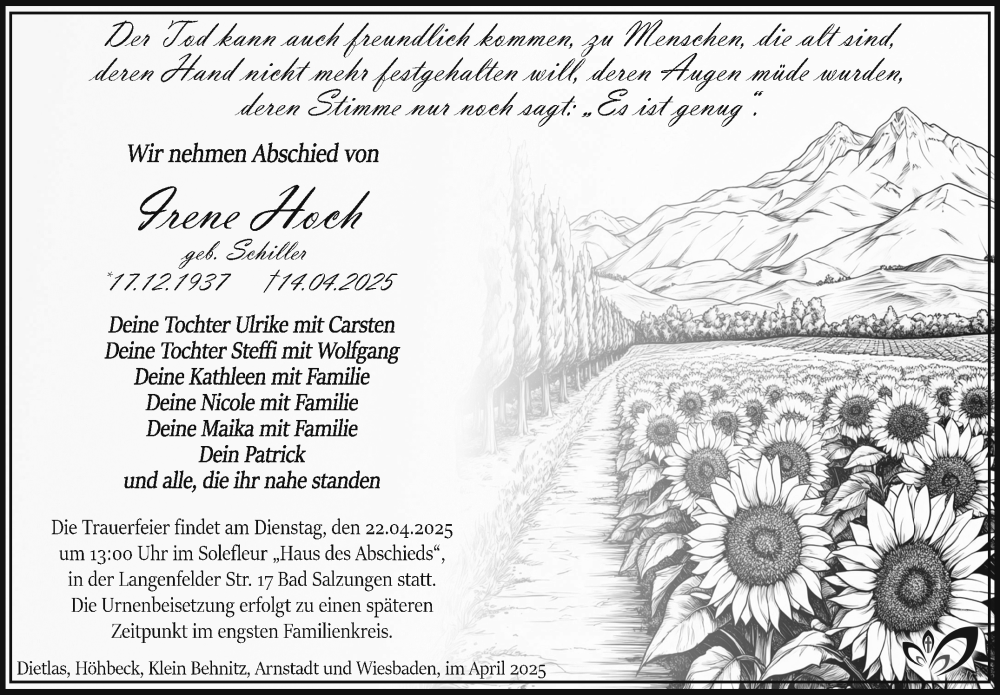 Der Tod kann auch freundlich kommen, zu Menschen, die alt sind,
deren Hand nicht mehr festgehalten will, deren Augen müde wurden,
deren Stimme nur noch sagt: „Es ist genug“.
Wir nehmen Abschied von
Irene Hoch
geb. Schiller
*17.12.1937 †14.04.2025
Deine Tochter Ulrike mit Carsten
Deine Tochter Steffi mit Wolfgang
Deine Kathleen mit Familie
Deine Nicole mit Familie
Deine Maika mit Familie
Dein Patrick
und alle, die ihr nahe standen
Die Trauerfeier findet am Dienstag, den 22.04.2025
um 13:00 Uhr im Solefleur „Haus des Abschieds“,
in der Langenfelder Str. 17 Bad Salzungen statt.
Die Urnenbeisetzung erfolgt zu einen späteren
Zeitpunkt im engsten Familienkreis.
Dietlas, Höhbeck, Klein Behnitz, Arnstadt und Wiesbaden, im April 2025